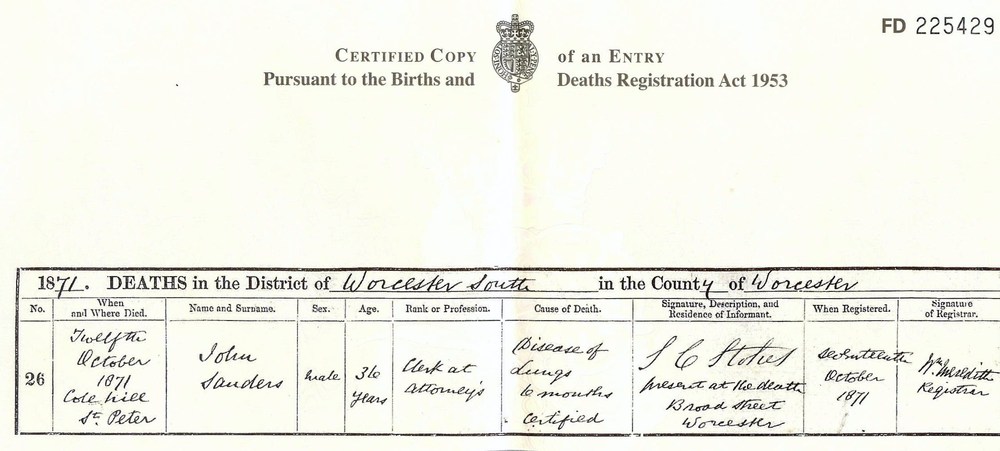 FD 225429
CERTIFIED COPY of an ENTRY
Pursuant to the Births and Deaths Registration Act 1953
1871. DEATHS in the District of Worcester South in the County of Worcester
No. When and Where Died. Name and Surname. Sex. Age. Rank or Profession. Cause of Death. Signature, Description, and Residence of Informant. When Registered. Signature of Registrar.
26
Twelfth
October
1871
Cole hill
St. Peter
John
Sanders
Male
36
years
Clerk at
Attorney's
Disease of
Lungs
6 months
Certified
S C Stokes
present at the death
Broad street
Worcester
Seventeenth
October
1871
Wm. Meredith
Registrar